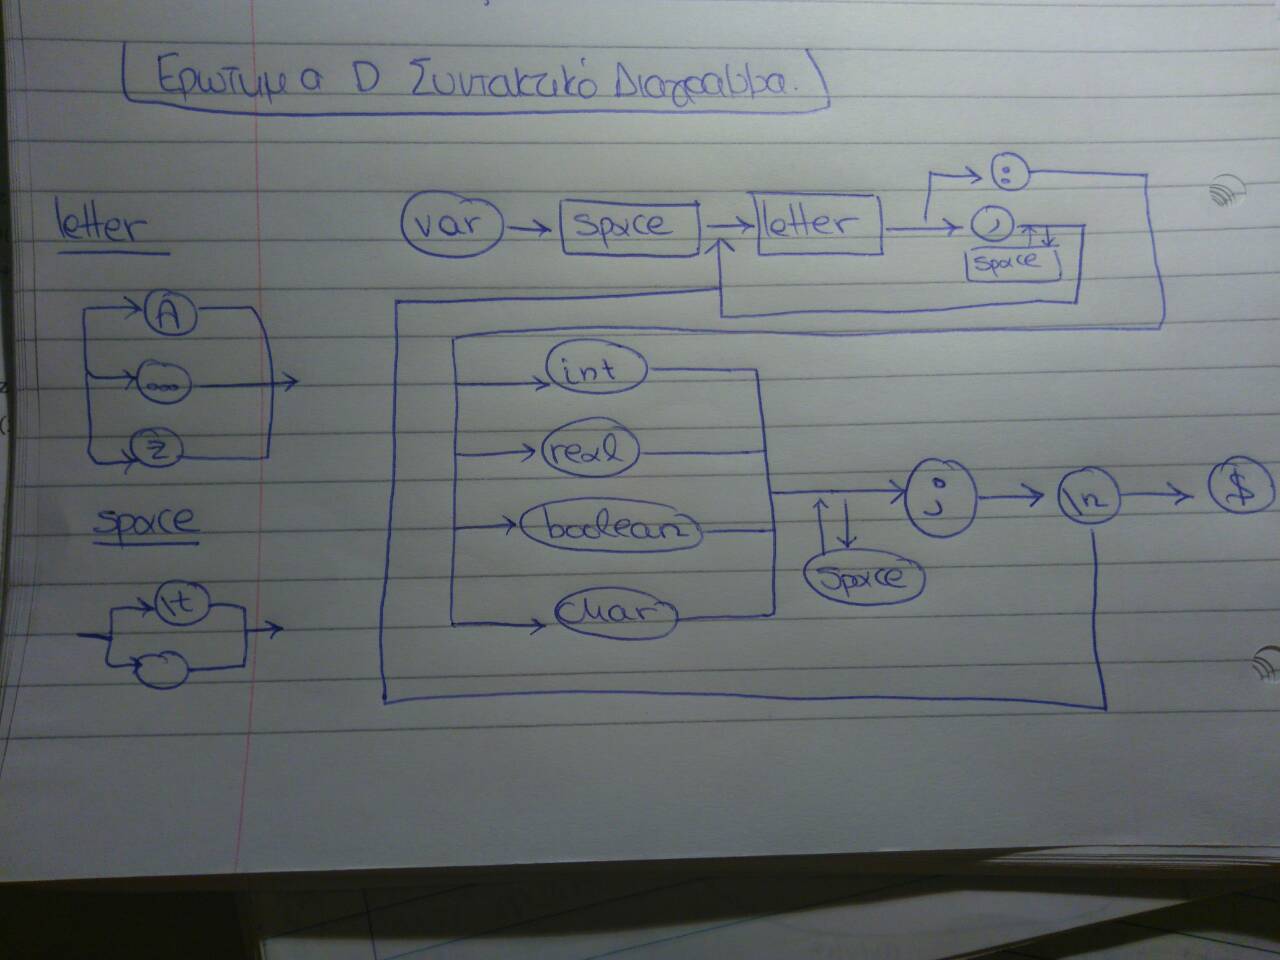 Ερωτημα D Συντακτικό Διαγραμμα.
letter
var space letter :
, space
A
...
z
int
real
boolean
char
space
; \n $
space
\t